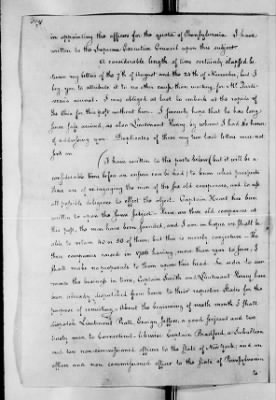 in appointing the officers for the quota of Pennsylvania I have
written to the Supreme Executive Council upon this subject
A considerable length of time certainly elapsed be
tween my letter of the 7th of August and the 25th of November, but I
beg you to attribute it to no other cause than waiting for Mr
arrival. I was obliged at last to embark at the rapids of
the Ohio for this post without him. I presume he has long
since arrived, as also Lieutenant by whom I had the honor
of addressing you. Duplicates of these my two last letters must not
I have written to the posts below but it will be a
considerable time before an answer can be had, to know what prospects
there are of re-engaging the men of the four old companies, and to use
all possible diligence to effect the object. Captain Heart has been
written to upon the same subject. There are three old companies at
this post, the men have been sounded, and I am in hopes we shall be
able to retain 40 or 50 of them; but this is merely conjecture. The
three companies raised in 1786 having more than year to serve, I
shall make no proposals to them upon this head. In order to com
mence the business in time, Captain Smith and Lieutenant have
been already dispatched from here to their respective states for the
purpose of recruiting. About the beginning of next month I shall
dispatch Lieutenant Pratt, Ensign and two
men to Connecticut. Likewise Captain Bradford, a Subaltern
and two non-commissioned officers to the State of New York; and an
officer and non commissioned officer to the State of Pennsylvania
to